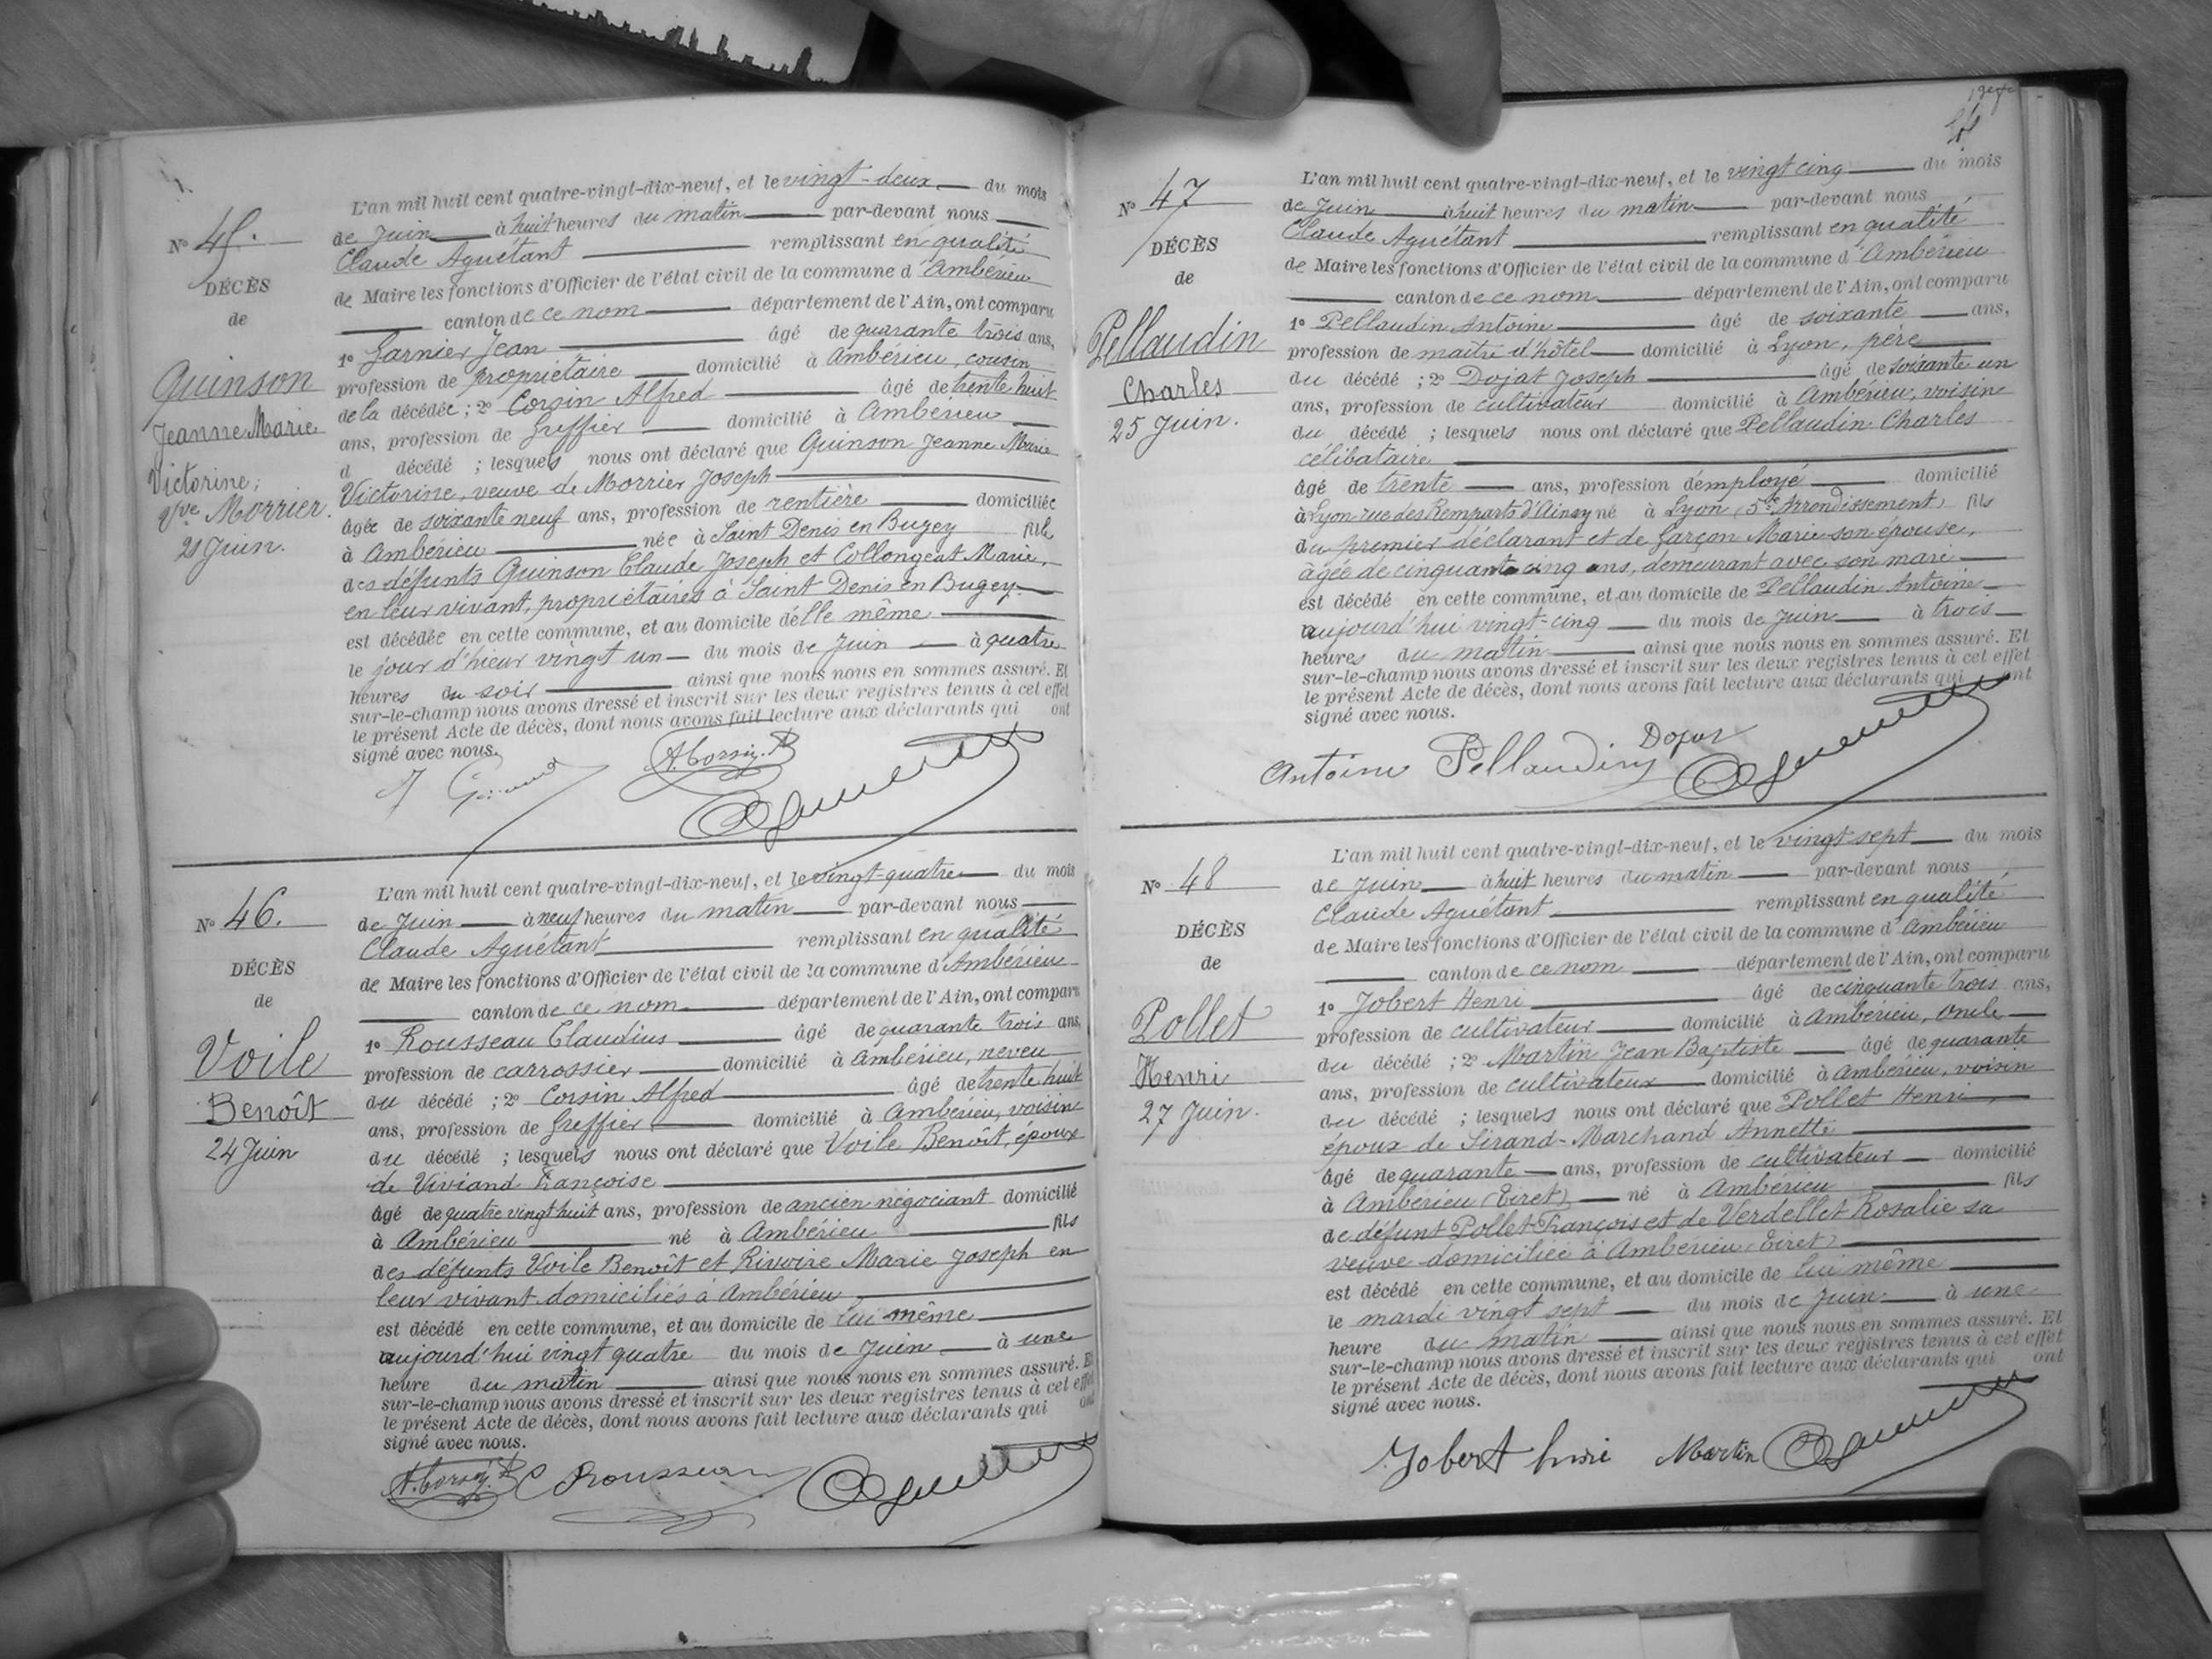 L'an mil huit cent quatre-vingt-dix-neuf, et le vingt-deux du mois
de Juin à huit heures du matin par-devant nous
Claude Aguétant remplissant en qualité
de Maire les fonctions d'Officier de l'état civil de la commune d'Ambérieu
canton de ce nom département de l'Ain, ont comparu
1º Garnier Jean âgé de quarante trois ans,
profession de propriétaire domicilié à Ambérieu, cousin
de la décédée ; 2º Corsin Alfred âgé de trente huit
ans, profession de Greffier domicilié à Ambérieu
d décédé ; lesquels nous ont déclaré que Quinson Jeanne Marie
Victorine, veuve de Morrier Joseph
âgée de soixante neuf ans, profession de rentière domiciliée
à Ambérieu née à Saint Denis en Bugey fille
des défunts Quinson Claude Joseph et Collongeat Marie,
en leur vivant, propriétaires à Saint Denis en Bugey
est décédée en cette commune, et au domicile d'elle même
le jour d'hier vingt un du mois de Juin à quatre
heures du soir ainsi que nous nous en sommes assuré. Et
sur-le-champ nous avons dressé et inscrit sur les deux registres tenus à cet effet
le présent Acte de décès, dont nous avons fait lecture aux déclarants qui ont
signé avec nous.
Nº 45.
DÉCÈS
de
Quinson
Jeanne Marie
Victorine,
Vve Morrier.
21 Juin.
A. Corsin
Aguétant
L'an mil huit cent quatre-vingt-dix-neuf, et le vingt-quatre du mois
de Juin à neuf heures du matin par-devant nous
Claude Aguétant remplissant en qualité
de Maire les fonctions d'Officier de l'état civil de la commune d'Ambérieu
canton de ce nom département de l'Ain, ont comparu
1º Rousseau Claudius âgé de quarante trois ans,
profession de carrossier domicilié à Ambérieu, neveu
du décédé ; 2º Corsin Alfred âgé de trente huit
ans, profession de Greffier domicilié à Ambérieu, voisin
du décédé ; lesquels nous ont déclaré que Voile Benoît, époux
de Viviand Françoise
âgé de quatre vingt huit ans, profession de ancien négociant domicilié
à Ambérieu né à Ambérieu fils
des défunts Voile Benoît et Rivoire Marie Joseph en
leur vivant domiciliés à Ambérieu
est décédé en cette commune, et au domicile de lui même
aujourd'hui vingt quatre du mois de Juin à une
heure du matin ainsi que nous nous en sommes assuré. Et
sur-le-champ nous avons dressé et inscrit sur les deux registres tenus à cet effet
le présent Acte de décès, dont nous avons fait lecture aux déclarants qui ont
signé avec nous.
Nº 46.
DÉCÈS
de
Voile
Benoît
24 Juin
A. Corsin C Rousseau Aguétant
L'an mil huit cent quatre-vingt-dix-neuf, et le vingt cinq du mois
de Juin à huit heures du matin par-devant nous
Claude Aguétant remplissant en qualité
de Maire les fonctions d'Officier de l'état civil de la commune d'Ambérieu
canton de ce nom département de l'Ain, ont comparu
1º Pellaudin Antoine âgé de soixante ans,
profession de maître d'hôtel domicilié à Lyon, père
du décédé ; 2º Dojat Joseph âgé de soixante un
ans, profession de cultivateur domicilié à Ambérieu, voisin
du décédé ; lesquels nous ont déclaré que Pellaudin Charles
célibataire
âgé de trente ans, profession d'employé domicilié
à Lyon rue des Remparts d'Ainay né à Lyon (5e Arrondissement) fils
du premier déclarant et de Garçon Marie son épouse,
âgée de cinquante cinq ans, demeurant avec son mari
est décédé en cette commune, et au domicile de Pellaudin Antoine
aujourd'hui vingt-cinq du mois de Juin à trois
heures du matin ainsi que nous nous en sommes assuré. Et
sur-le-champ nous avons dressé et inscrit sur les deux registres tenus à cet effet
le présent Acte de décès, dont nous avons fait lecture aux déclarants qui ont
signé avec nous.
Nº 47
DÉCÈS
de
Pellaudin
Charles
25 Juin.
Antoine Pellaudin Dojat Aguétant
L'an mil huit cent quatre-vingt-dix-neuf, et le vingt sept du mois
de Juin à huit heures du matin par-devant nous
Claude Aguétant remplissant en qualité
de Maire les fonctions d'Officier de l'état civil de la commune d'Ambérieu
canton de ce nom département de l'Ain, ont comparu
1º Jobert Henri âgé de cinquante trois ans,
profession de cultivateur domicilié à Ambérieu, oncle
du décédé ; 2º Martin Jean Baptiste âgé de quarante
ans, profession de cultivateur domicilié à Ambérieu, voisin
du décédé ; lesquels nous ont déclaré que Pollet Henri,
époux de Sirand-Marchand Annette
âgé de quarante ans, profession de cultivateur domicilié
à Ambérieu (Tiret) né à Ambérieu fils
de défunt Pollet François et de Verdellet Rosalie sa
veuve domiciliée à Ambérieu (Tiret)
est décédé en cette commune, et au domicile de lui même
le mardi vingt sept du mois de Juin à une
heure du matin ainsi que nous nous en sommes assuré. Et
sur-le-champ nous avons dressé et inscrit sur les deux registres tenus à cet effet
le présent Acte de décès, dont nous avons fait lecture aux déclarants qui ont
signé avec nous.
Nº 48
DÉCÈS
de
Pollet
Henri
27 Juin.
Jobert henri Martin Aguétant